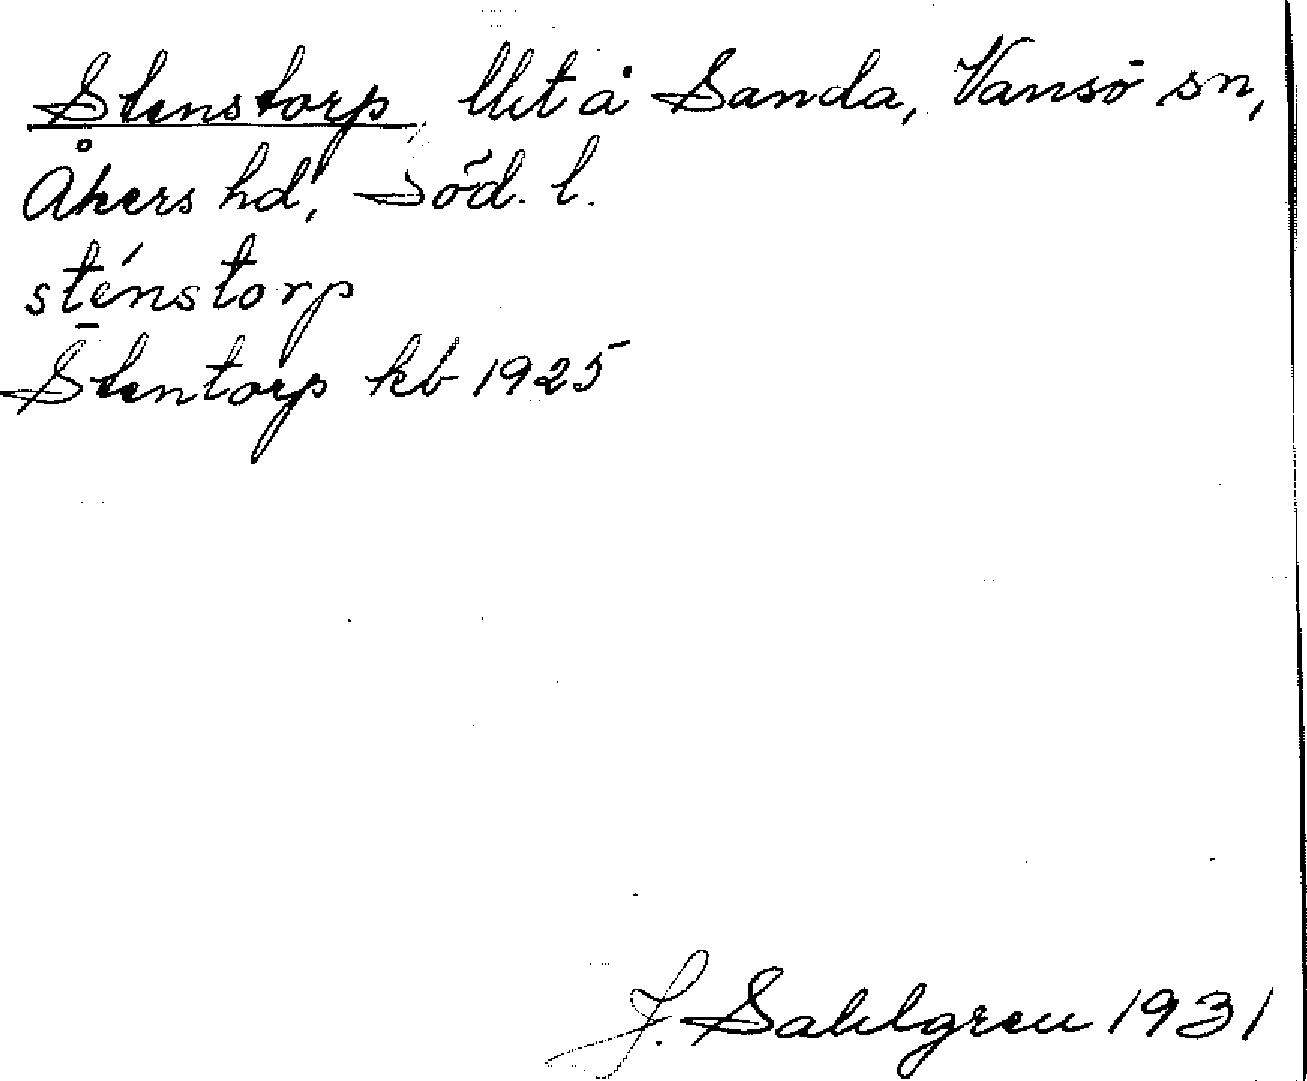 Stenstorp, Uet å Sanda, Vansö sn,
Åkers hd, Söd. l.
sténstorp
Stentorp kb 1925
J. Sahlgren 1931